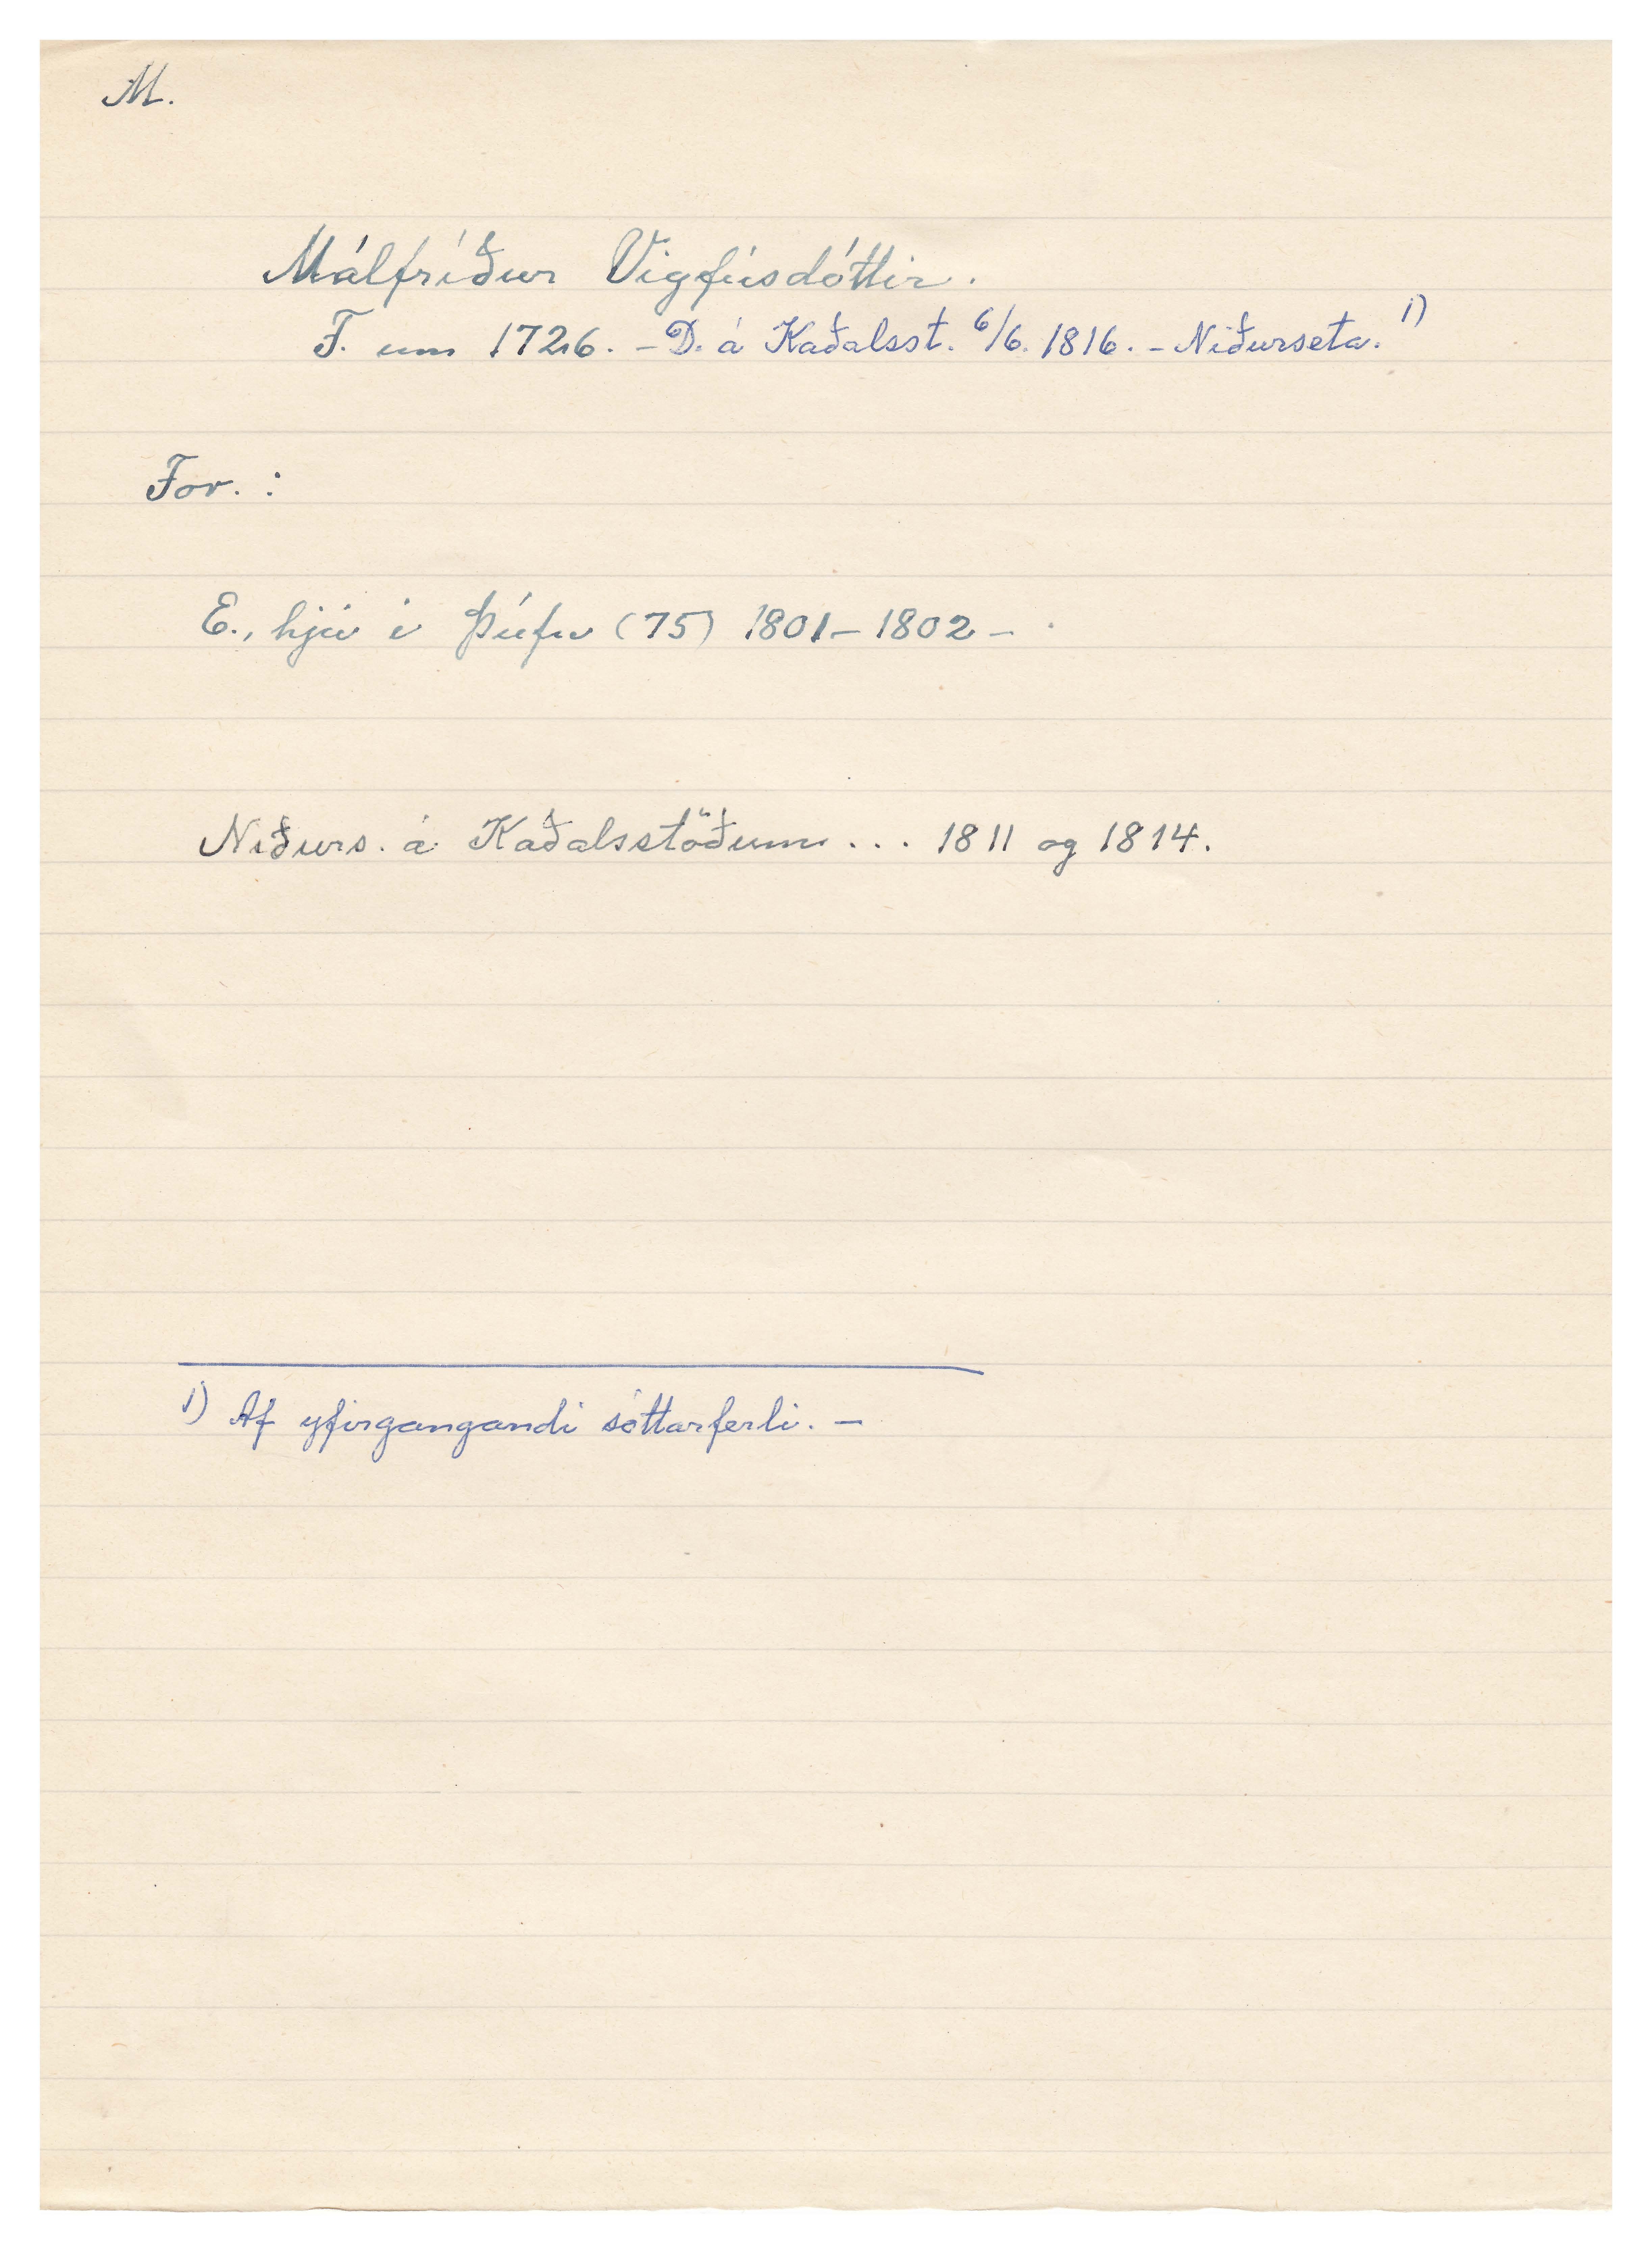 M.
Málfríður Vigfúsdóttir.
F. um 1726. - D. á Kaðalsst. 6/6. 1816. - Niðurseta. 1)
For. :
E., hjú í Þúfu (75) 1801 - 1802 -
Niðurs. á Kaðalsstöðum ... 1811 og 1814.
1) Af yfirgangandi sóttarferli. -